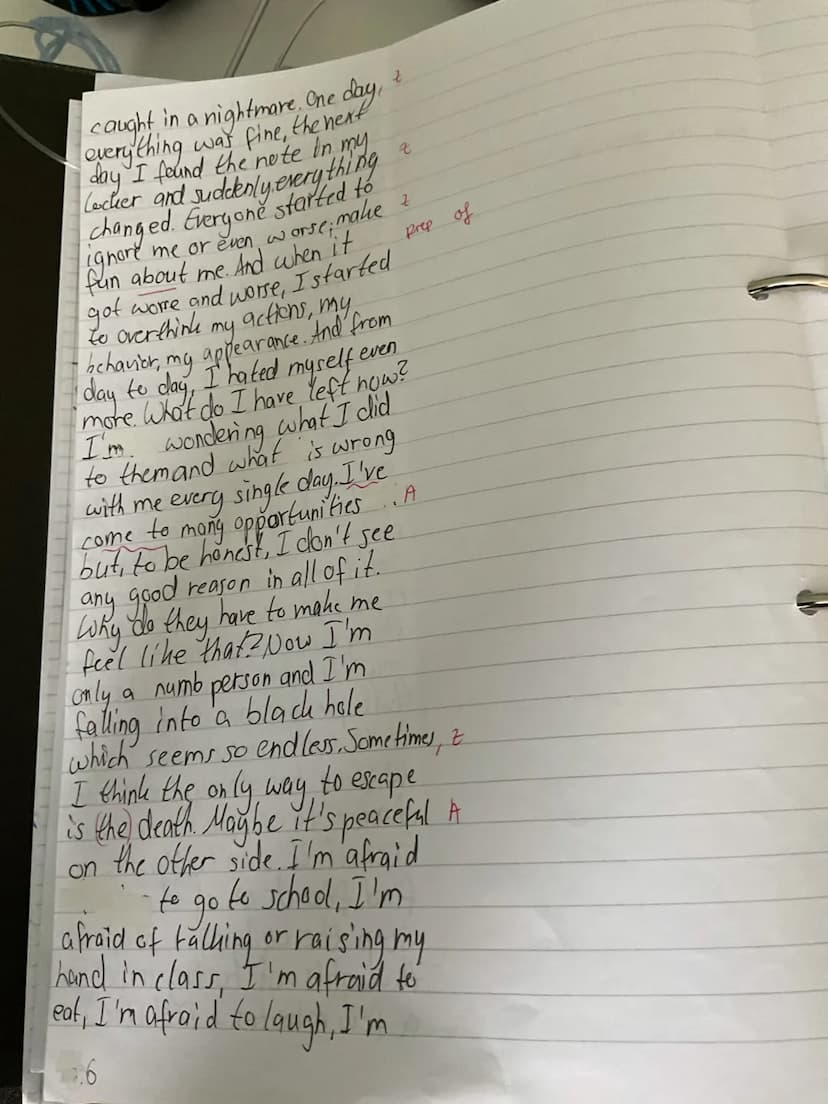 caught in a nightmare. One day, z
everything was fine, the next
day I found the note in my z
locker and suddenly, everything
changed. Everyone started to
ignore me or even worse; make z
fun about me. And when it prep of
got worse and worse, I started
to overthink my actions, my
behavior, my appearance. And from
day to day, I hated myself even
more. What do I have left now?
I'm wondering what I did
to them and what is wrong
with me every single day. I've
come to many opportunities A
but, to be honest, I don't see
any good reason in all of it.
Why do they have to make me
feel like that? Now I'm
only a numb person and I'm
falling into a black hole
which seems so endless. Sometimes, z
I think the only way to escape
is (the) death. Maybe it's peaceful A
on the other side. I'm afraid
to go to school, I'm
afraid of talking or raising my
hand in class, I'm afraid to
eat, I'm afraid to laugh, I'm
.6